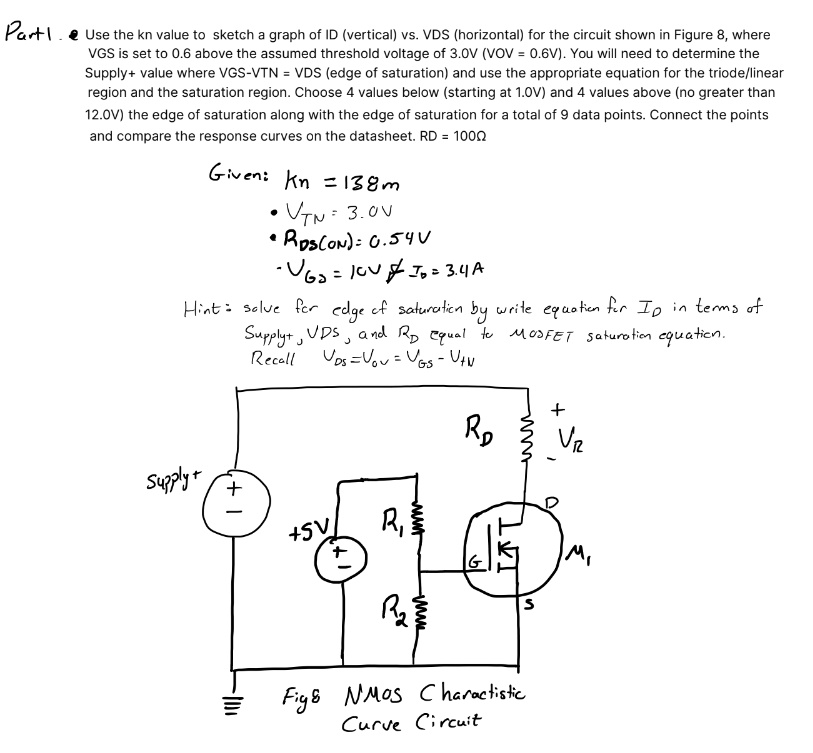 Part 1. Use the kn value to sketch a graph of ID (vertical) vs. VDS (horizontal) for the circuit shown in Figure 8, where
VGS is set to 0.6 above the assumed threshold voltage of 3.0V (VOV = 0.6V). You will need to determine the
Supply+ value where VGS-VTN = VDS (edge of saturation) and use the appropriate equation for the triode/linear
region and the saturation region. Choose 4 values below (starting at 1.0V) and 4 values above (no greater than
12.0V) the edge of saturation along with the edge of saturation for a total of 9 data points. Connect the points
and compare the response curves on the datasheet. RD = 100Ω
Given: kn = 138m
• VTN = 3.0V
• RDS(ON) = 0.54V
- VGS = 10V & ID = 3.4A
Hint: solve for edge of saturation by write equation for ID in terms of
Supply+, VDS, and RD equal to MOSFET saturation equation.
Recall VDS = VOV = VGS - VtN
RD
+
VR
-
Supply+
+
-
+5V
+
-
R1
D
G
M1
R2
S
Fig 8 NMOS Charactistic
Curve Circuit